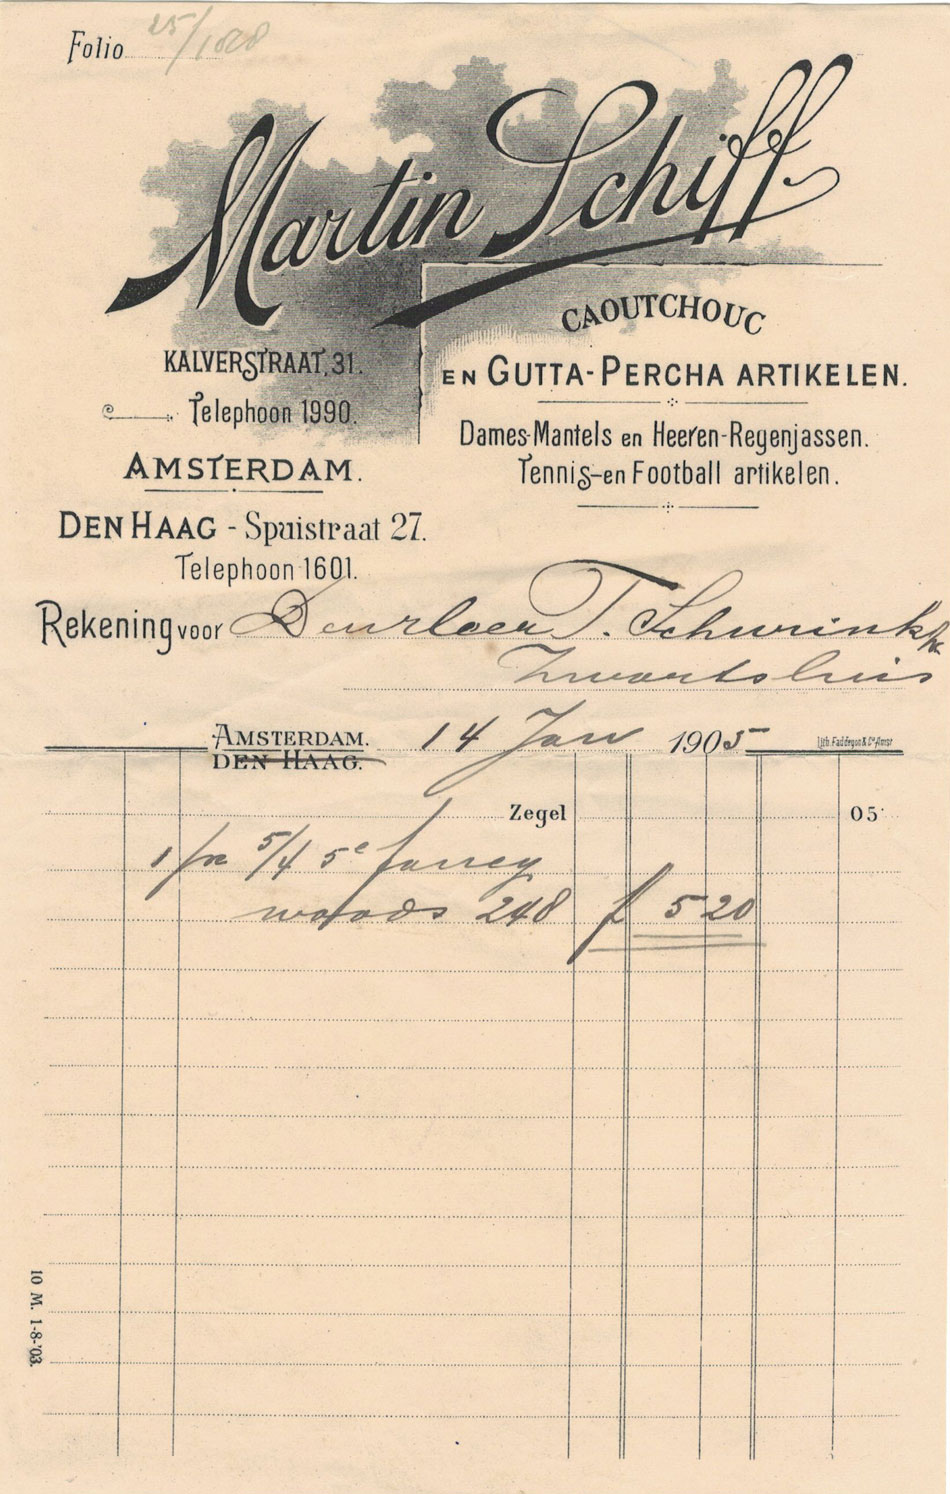 Folio 25/1028
Martin Schiff.
CAOUTCHOUC
EN GUTTA-PERCHA ARTIKELEN.
Dames-Mantels en Heeren-Regenjassen.
Tennis-en Football artikelen.
KALVERSTRAAT, 31.
Telephoon 1990.
AMSTERDAM.
DEN HAAG - Spuistraat 27.
Telephoon 1601.
Rekening voor T. Schurink
Zwartsluis
AMSTERDAM. 14 Jan 1905
DEN HAAG.
lith. Faddegon & Co Amst
Zegel 05
1 5/4 5e
woods 248 f 5 20
10 M. 1-8-'03.